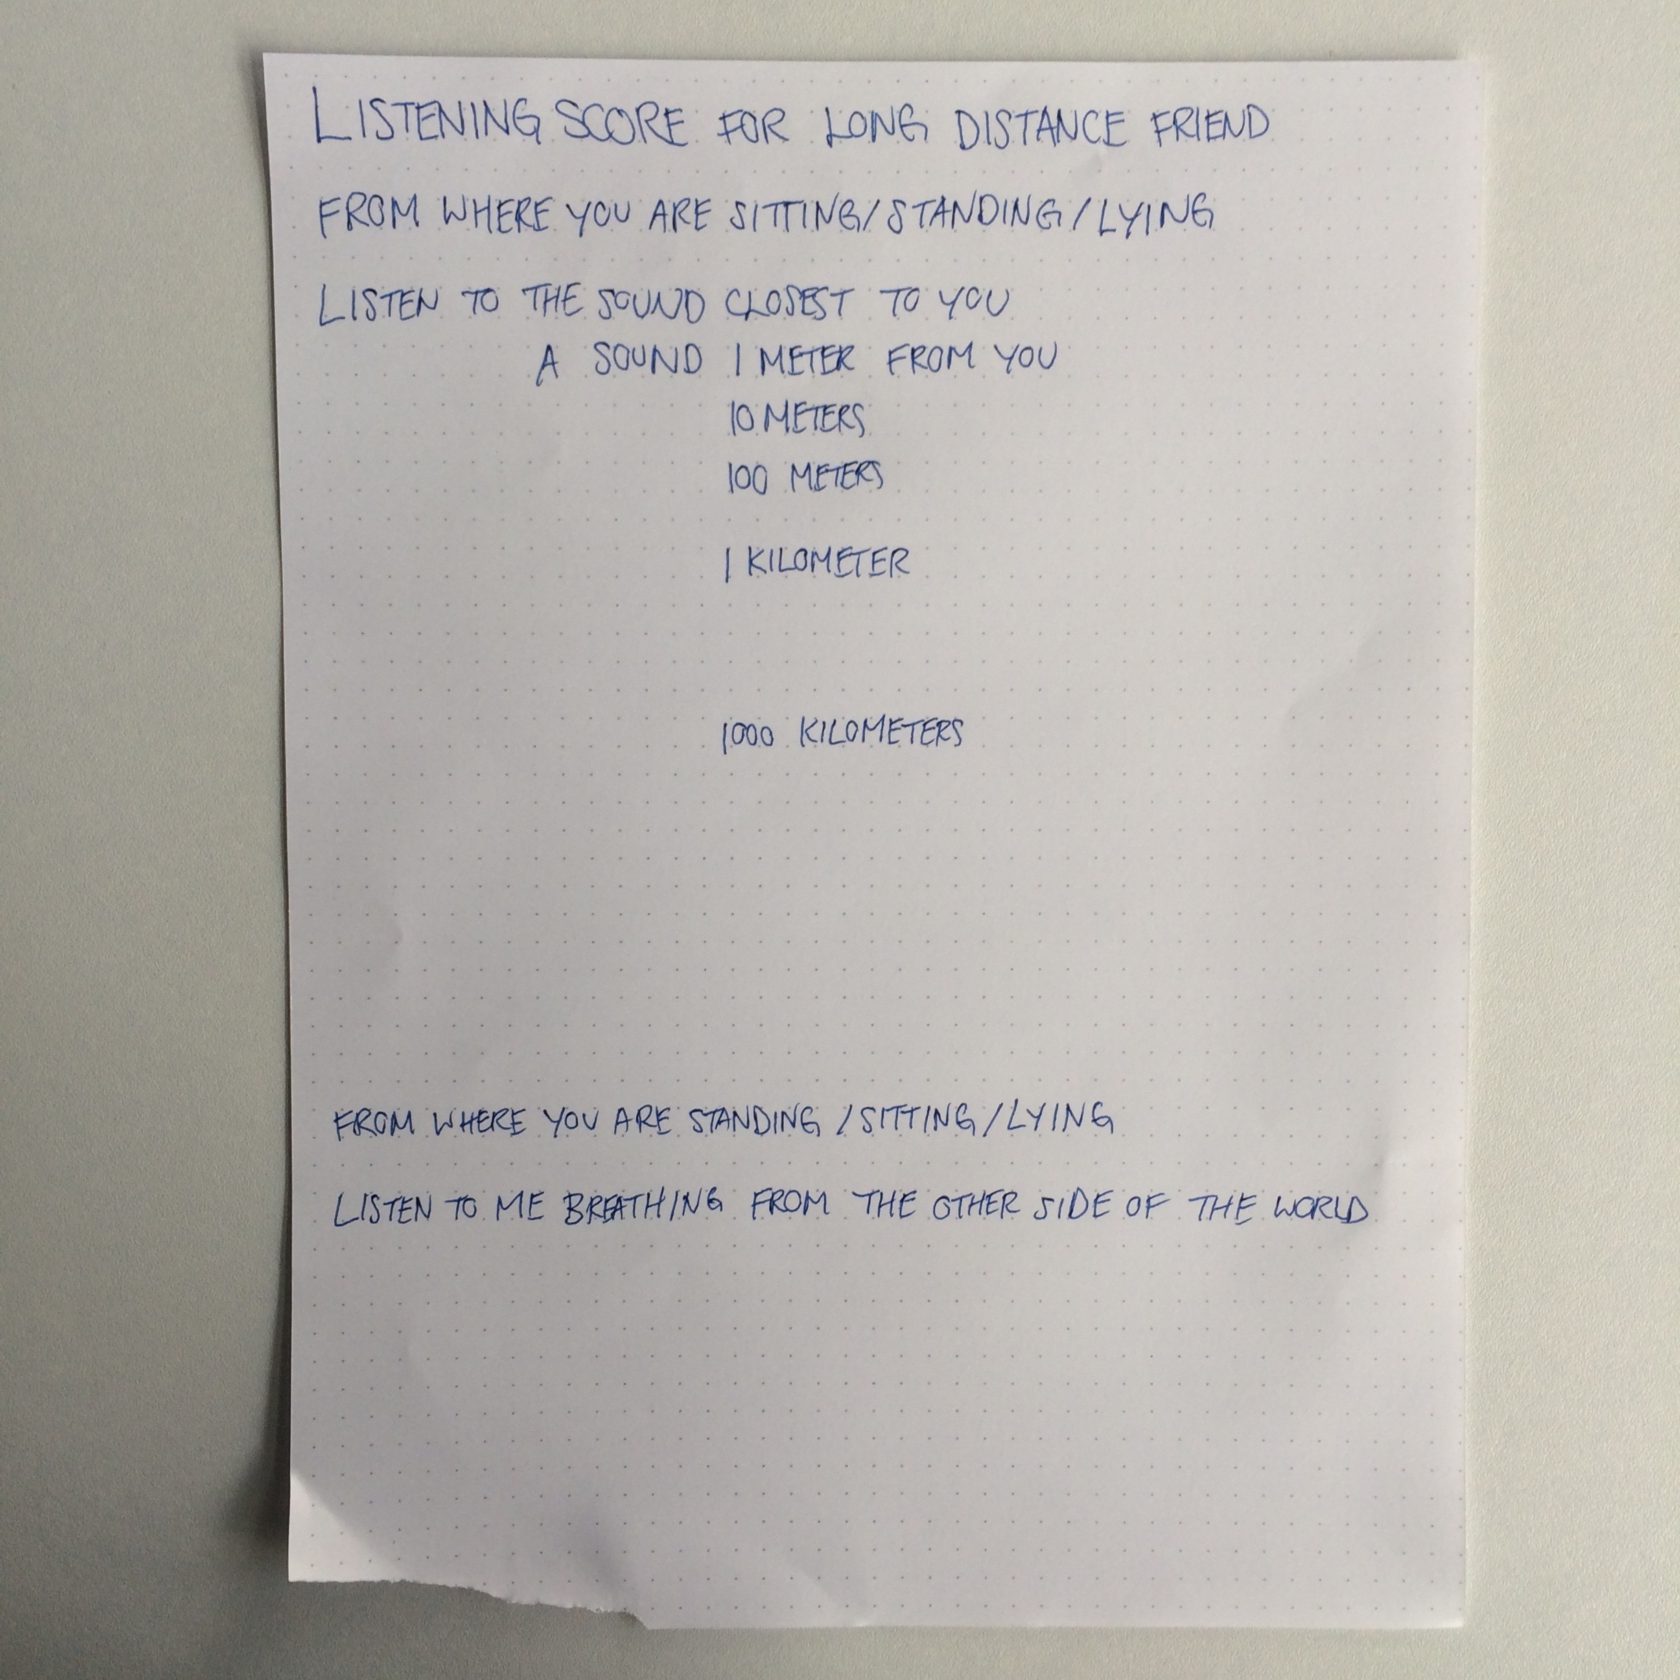 LISTENING SCORE FOR LONG DISTANCE FRIEND
FROM WHERE YOU ARE SITTING/STANDING/LYING
LISTEN TO THE SOUND CLOSEST TO YOU
A SOUND 1 METER FROM YOU
10 METERS
100 METERS
1 KILOMETER
1000 KILOMETERS
FROM WHERE YOU ARE STANDING/SITTING/LYING
LISTEN TO ME BREATHING FROM THE OTHER SIDE OF THE WORLD